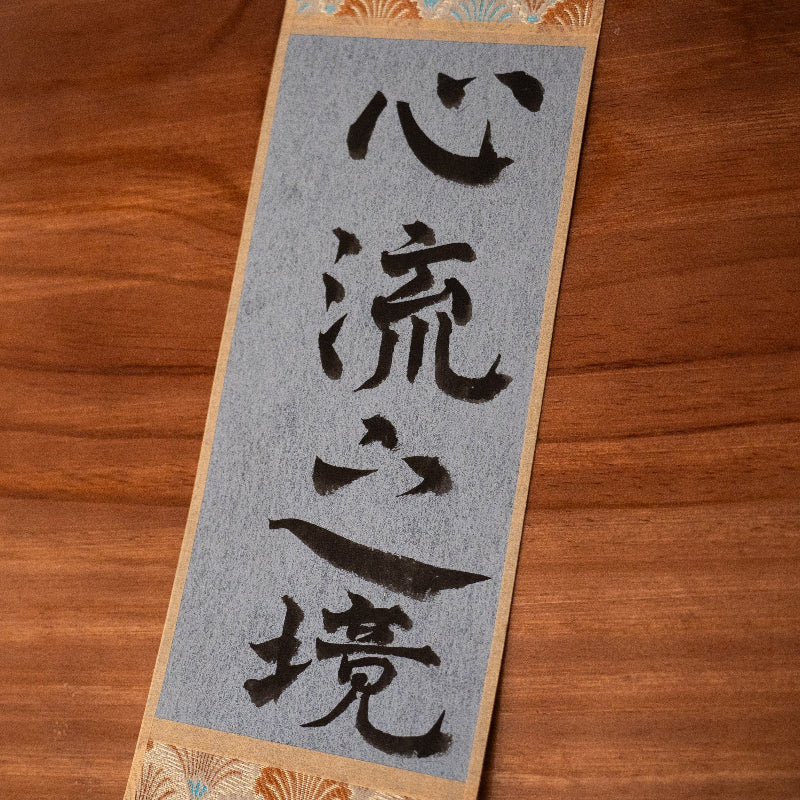 心流之境